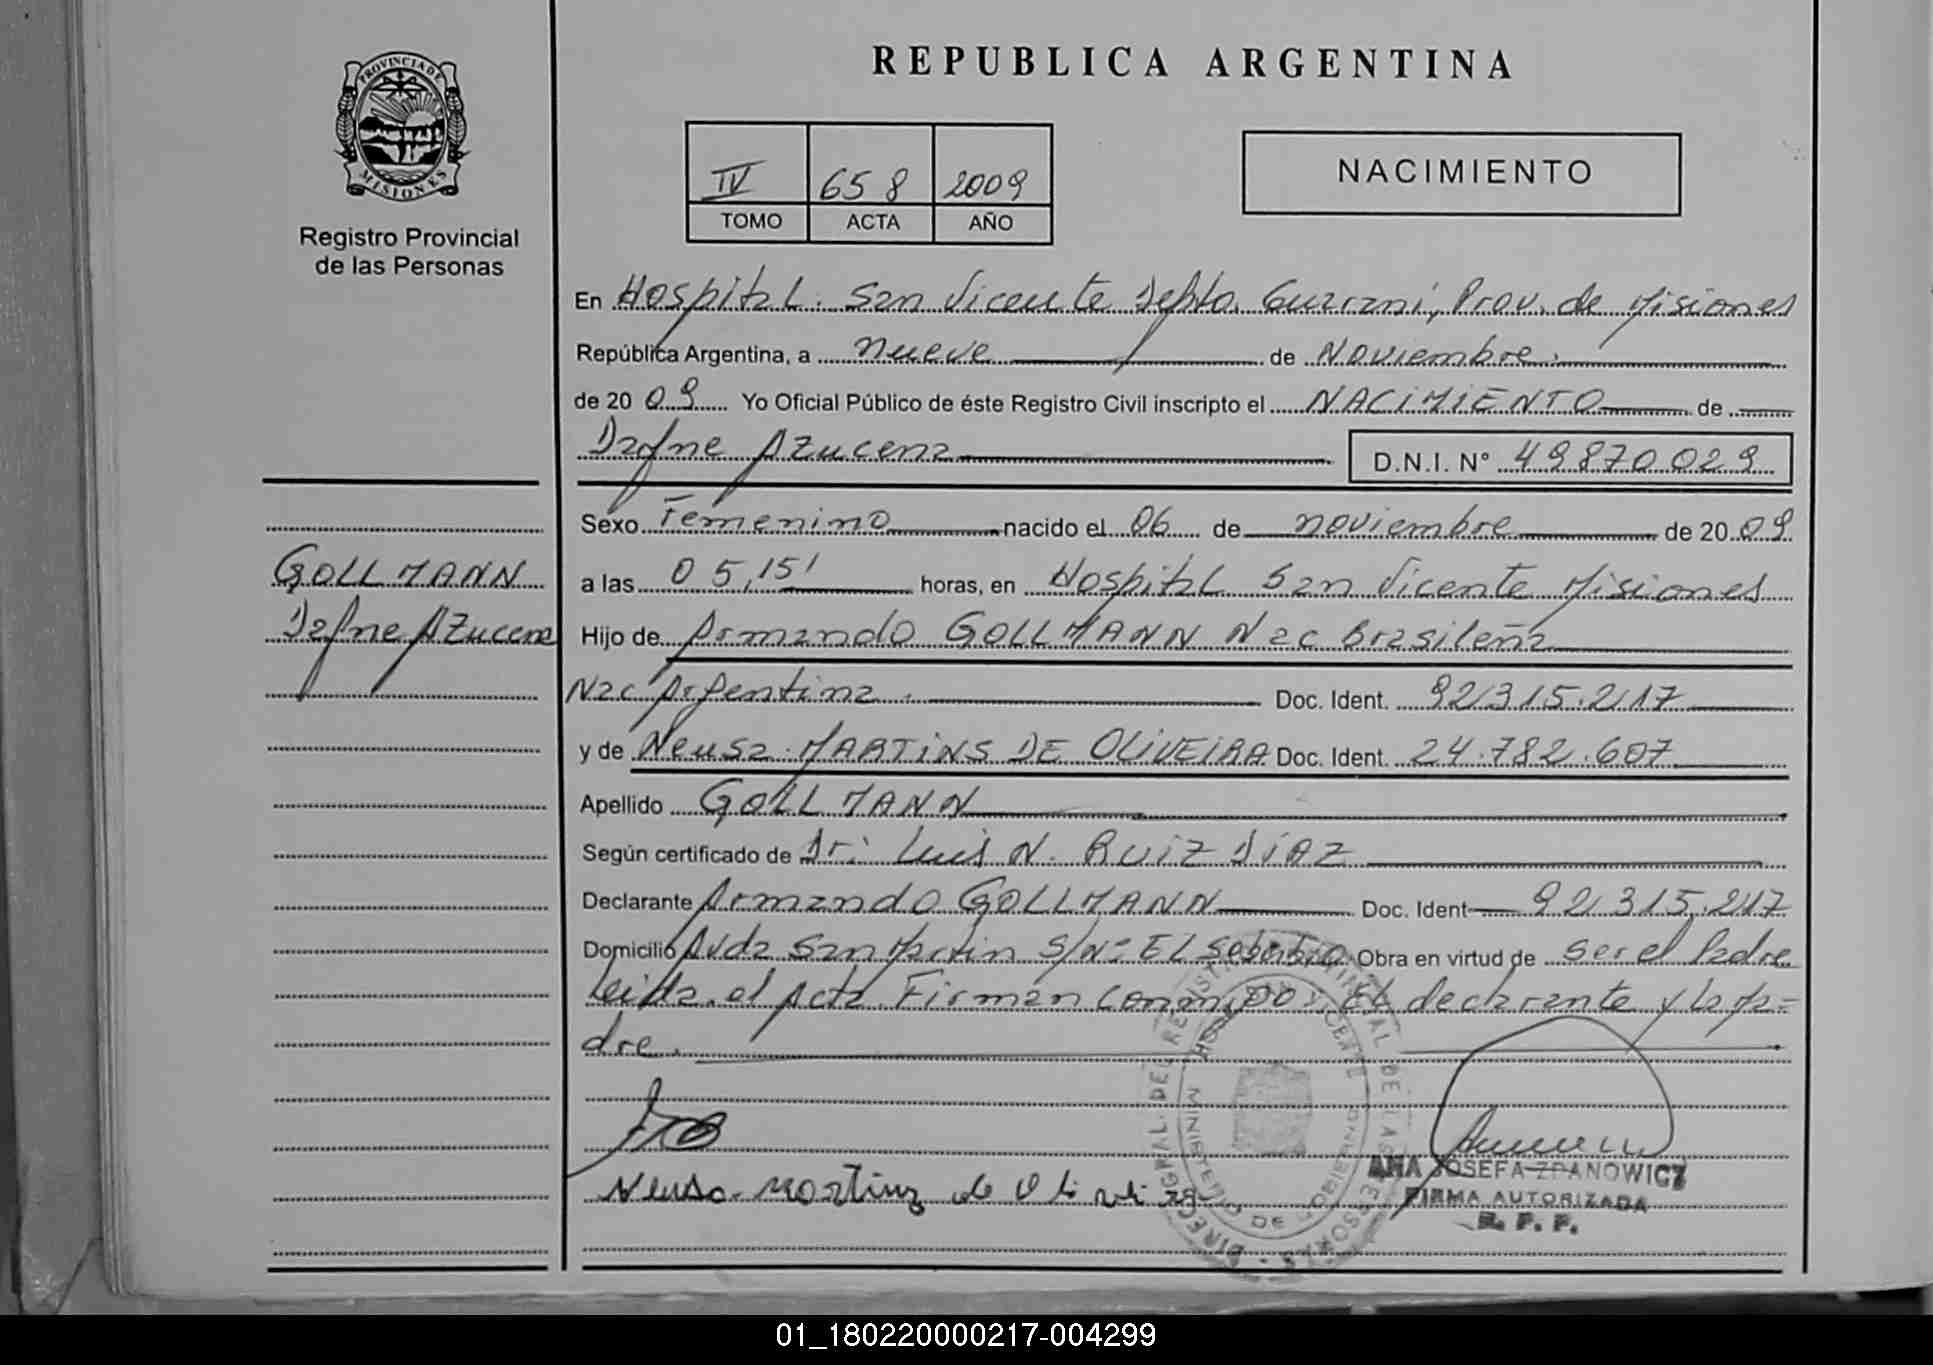 REPUBLICA ARGENTINA
PROVINCIA DE
MISIONES
Registro Provincial
de las Personas
IV 658 2009
TOMO ACTA AÑO
NACIMIENTO
En Hospital. San Vicente Depto. Guaraní, Prov. de Misiones
República Argentina, a nueve de Noviembre.
de 20 09 Yo Oficial Público de éste Registro Civil inscripto el NACIMIENTO de
Dafne Azucena D.N.I. N° 49870029
Sexo Femenino nacido el 06 de noviembre de 20 09
GOLLMANN
Dafne Azucena
a las 05,15' horas, en Hospital San Vicente Misiones
Hijo de Armando GOLLMANN Nac Brasileña
Nac Argentina. Doc. Ident. 92315.217
y de Neusa MARTINS DE OLIVEIRA Doc. Ident. 24.782.607
Apellido GOLLMANN
Según certificado de Dr. Luis N. RUIZ DIAZ
Declarante Armando GOLLMANN Doc. Ident 92.315.217
Domicilio Avda San Martin S/N= El Soberbio Obra en virtud de ser el Padre
leida el Acta Firman conmigo El declarante y la Ma=
dre.
Neusa
ANA JOSEFA ZDANOWICZ
FIRMA AUTORIZADA
R. P. P.
MINISTERIO DE GOBIERNO
01_180220000217-004299